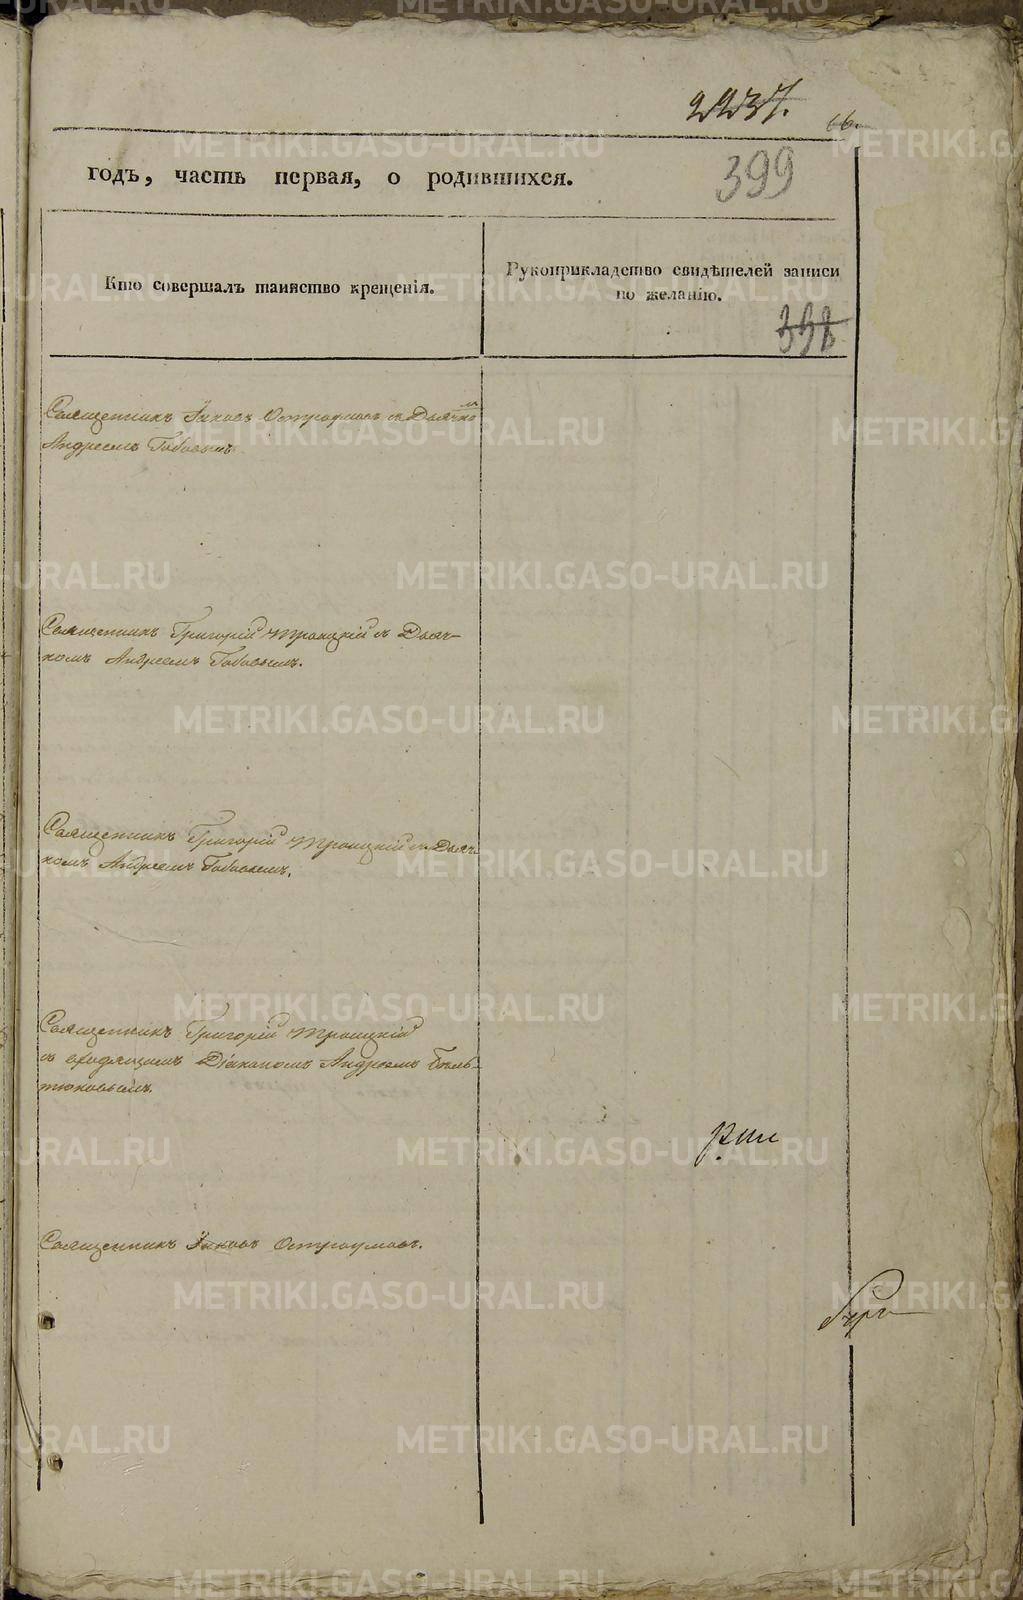 2237.
66.
годъ, часть первая, о родившихся.
399
Кто совершалъ таинство крещенія.
Рукоприкладство свидѣтелей записи
по желанію.
398
Священникъ Іаковъ Остроумовъ съ Дьячко
мъ
Андреемъ Бабовымъ
Священникъ Григорій Троицкій съ Дьяч-
комъ Андреемъ Бабовымъ.
Священникъ Григорій Троицкій съ Дьяч-
комъ Андреемъ Бабовымъ.
Священникъ Григорій Троицкій
съ Діакономъ Андреемъ
Священникъ Іаковъ Остроумовъ.
METRIKI.GASO-URAL.RU